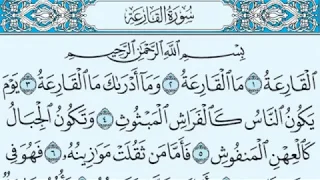 سُورَةُ القَارِعَةِ
بِسْمِ اللَّهِ الرَّحْمَٰنِ الرَّحِيمِ
الْقَارِعَةُ ١ مَا الْقَارِعَةُ ٢ وَمَا أَدْرَىٰكَ مَا الْقَارِعَةُ ٣ يَوْمَ
يَكُونُ النَّاسُ كَالْفَرَاشِ الْمَبْثُوثِ ٤ وَتَكُونُ الْجِبَالُ
كَالْعِهْنِ الْمَنفُوشِ ٥ فَأَمَّا مَن ثَقُلَتْ مَوَٰزِينُهُ ٦ فَهُوَ فِي